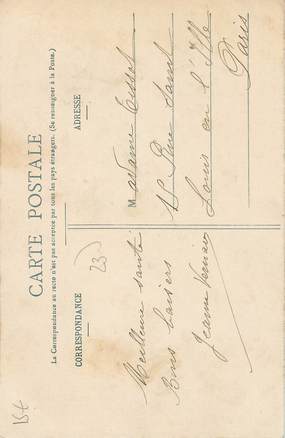 CARTE POSTALE
La Correspondance au recto n'est pas acceptée par tous les pays étrangers. (Se renseigner à la Poste.)
CORRESPONDANCE
ADRESSE
23
Meilleure santé
Bons baisers
Jeanne
Madame
15 Rue Saint
Louis en l'Isle
Paris